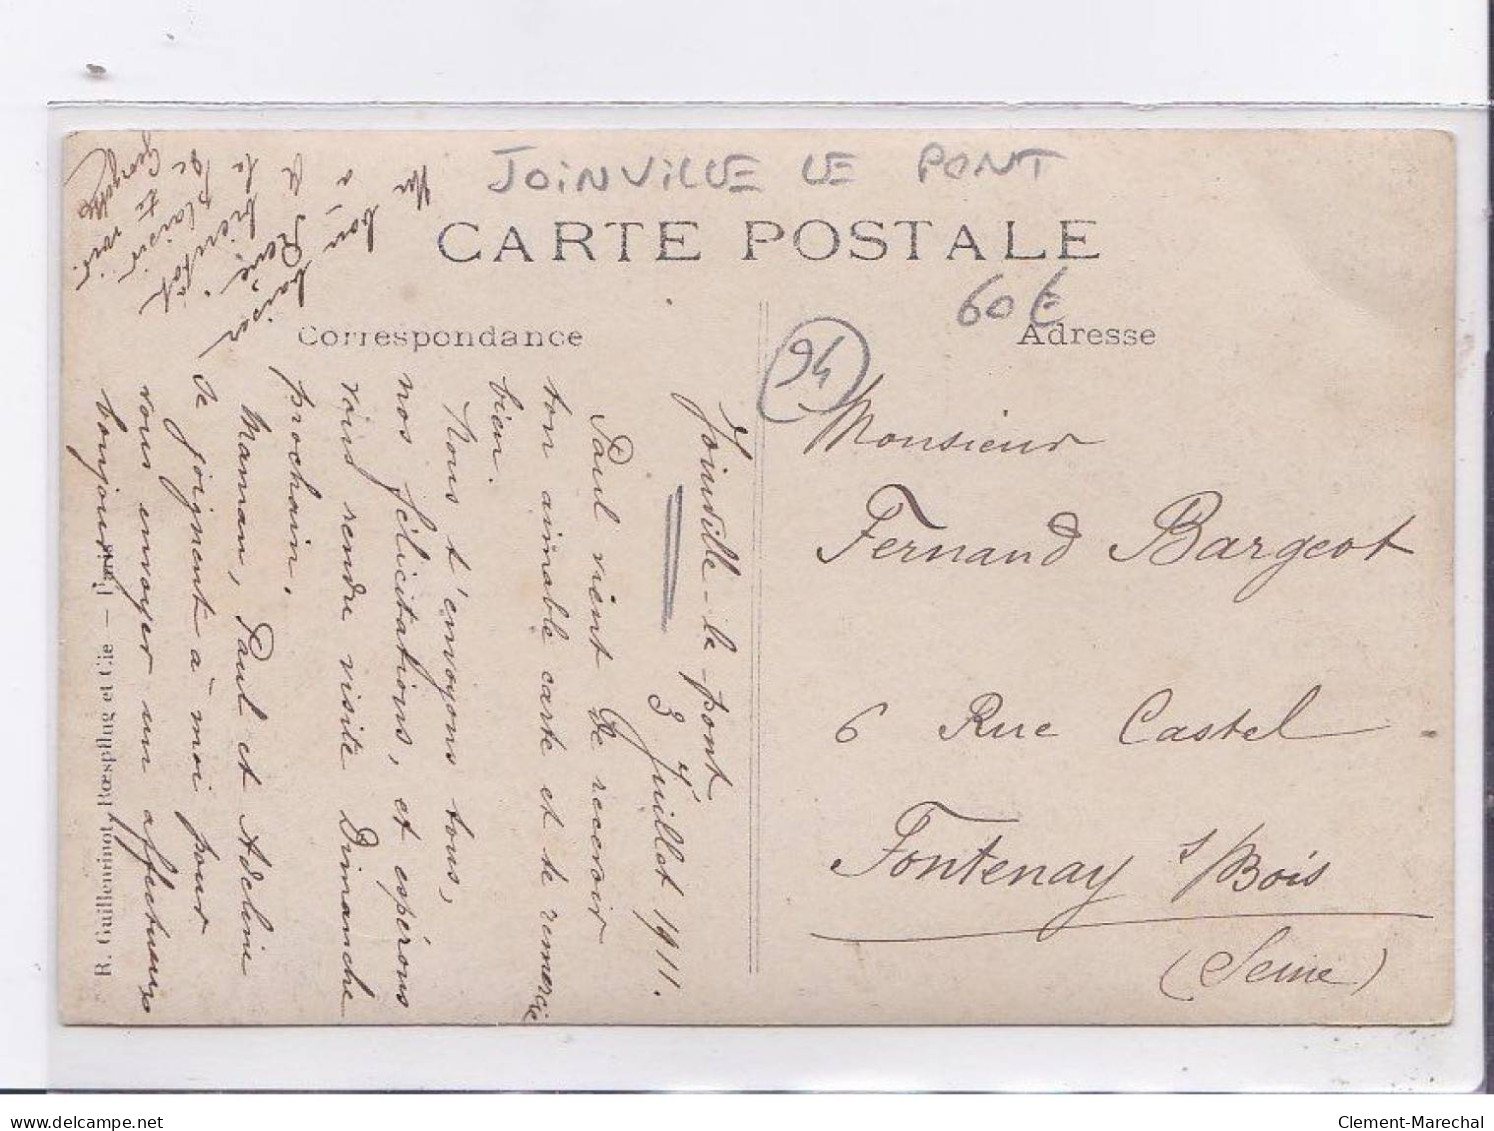 JOINVILLE LE PONT
CARTE POSTALE
60€
Correspondance
Adresse
94
Joinville-le-pont
3 Juillet 1911.
Paul vient de recevoir
ton aimable carte et te remercie
bien.
Nous t'envoyons tous,
nos félicitations, et espérons
vous rendre visite Dimanche
prochain.
Maman, Paul et Adeline
se joignent à moi pour
vous envoyer un affectueux
bonjour
Un bon baiser
à René.
à bientôt
le plaisir
de te voir.
Georgette
Monsieur
Fernand Bargeot
6 Rue Castel
Fontenay s/Bois
(Seine)
R. Guilleminot, Rœspflug et Cie — Paris
delcampe.net
Clement-Marechal